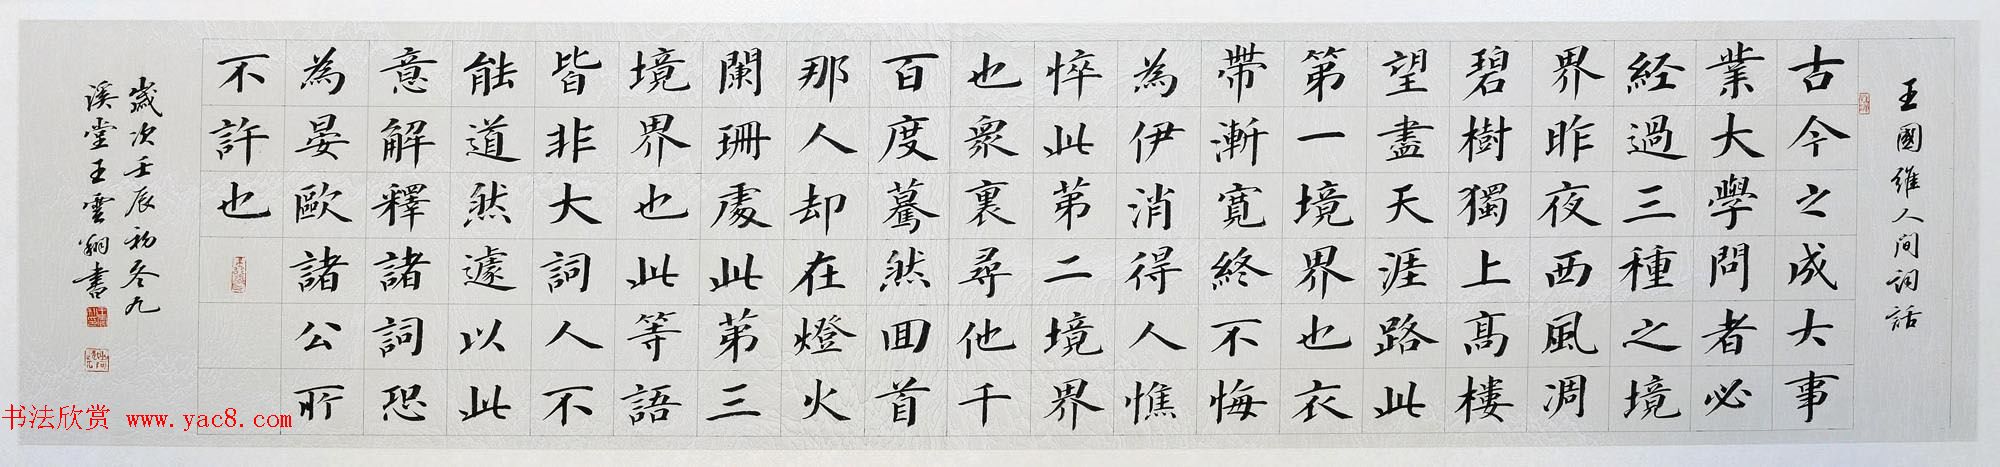 王國維人间词话
古今之成大事
業大學問者必
経過三種之境
界昨夜西風凋
碧樹獨上髙樓
望盡天涯路此
第一境界也衣
帶漸寬終不悔
為伊消得人憔
悴此第二境界
也衆裏尋他千
百度驀然回首
那人却在燈火
闌珊處此第三
境界也此等語
皆非大詞人不
能道然遽以此
意解釋諸詞恐
為晏歐諸公所
不許也
歲次壬辰初冬九
溪堂王雲翔書
书法欣赏 www.yac8.com